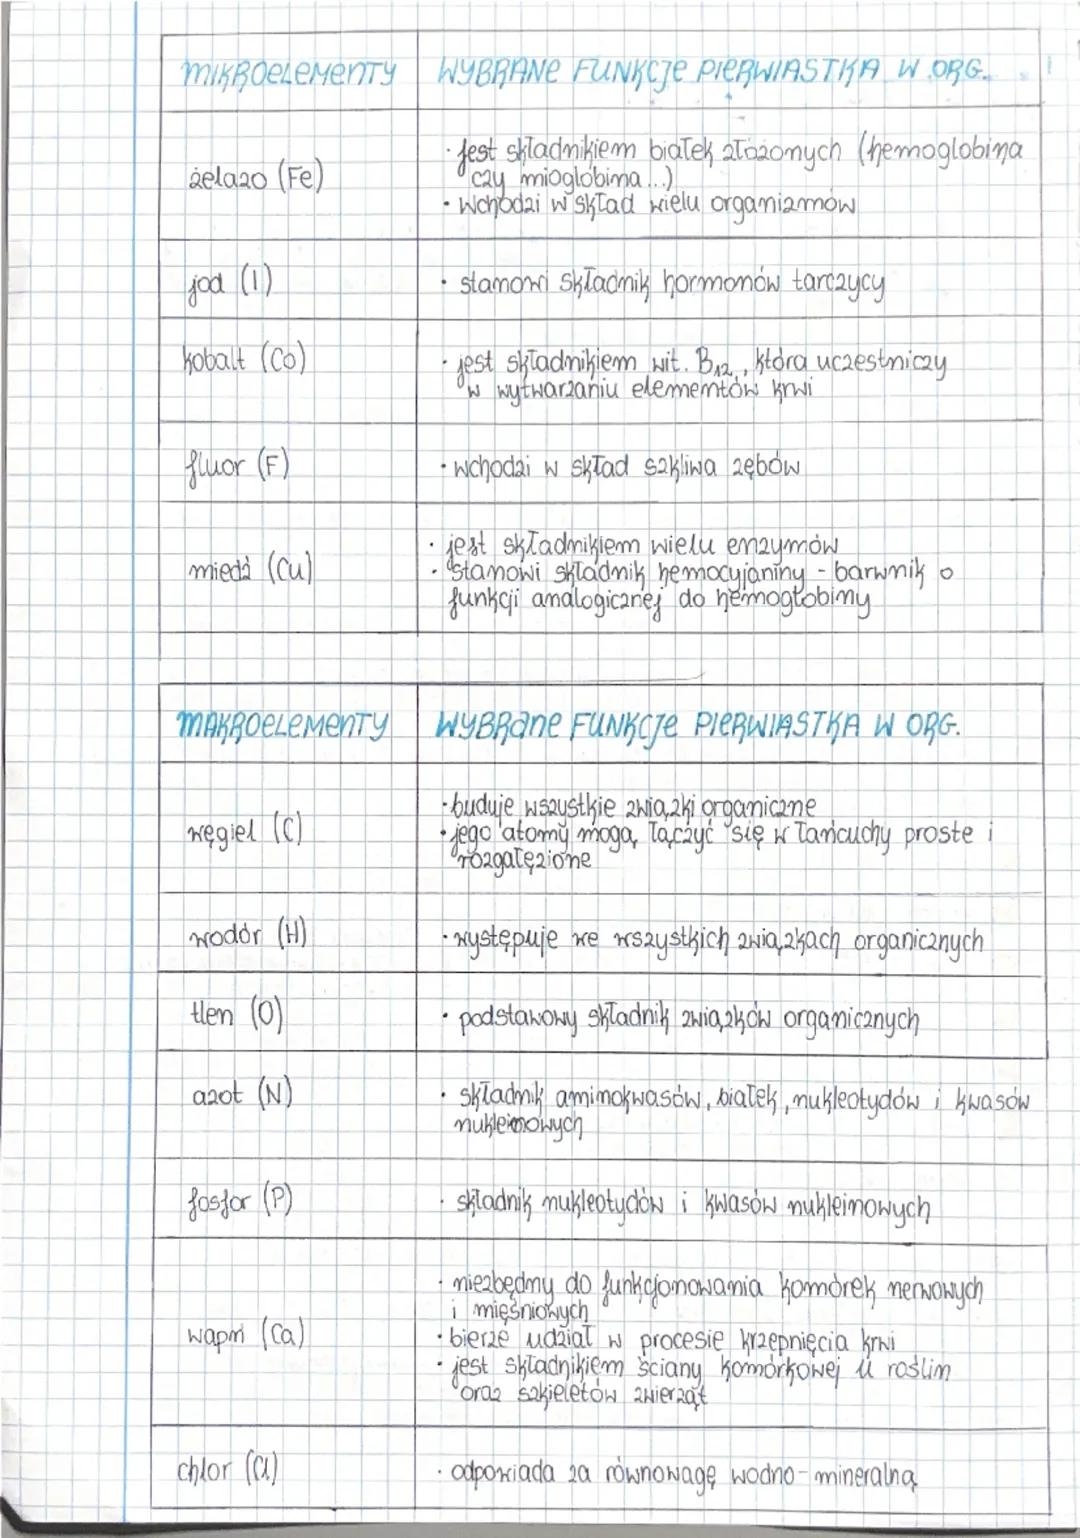 MIKROELEMENTY WYBRANE FUNKCJE PIERWIASTKA W ORG.
żelazo (Fe)
· jest składnikiem białek złożonych (hemoglobina
czy mioglobina...)
· wchodzi w skład wielu organizmów
jod (I)
· stanowi składnik hormonów tarczycy
kobalt (Co)
· jest składnikiem wit. B₁₂, która uczestniczy
w wytwarzaniu elementów krwi
fluor (F)
· wchodzi w skład szkliwa zębów
miedź (Cu)
· jest składnikiem wielu enzymów
· stanowi składnik hemocyjaniny - barwnik o
funkcji analogicznej do hemogłobiny
MAKROELEMENTY WYBRANE FUNKCJE PIERWIASTKA W ORG.
węgiel (C)
· buduje wszystkie związki organiczne
· jego atomy mogą łączyć się w łańcuchy proste i
rozgałęzione
wodór (H)
· występuje we wszystkich związkach organicznych
tlen (O)
· podstawowy składnik związków organicznych
azot (N)
· składnik aminokwasów, białek, nukleotydów i kwasów
nukleinowych
fosfor (P)
· składnik nukleotydów i kwasów nukleinowych
wapń (Ca)
· niezbędny do funkcjonowania komórek nerwowych
i mięśniowych
· bierze udział w procesie krzepnięcia krwi
· jest składnikiem ściany komórkowej u roślin
oraz szkieletów zwierząt
chlor (Cl)
· odpowiada za równowagę wodno-mineralną